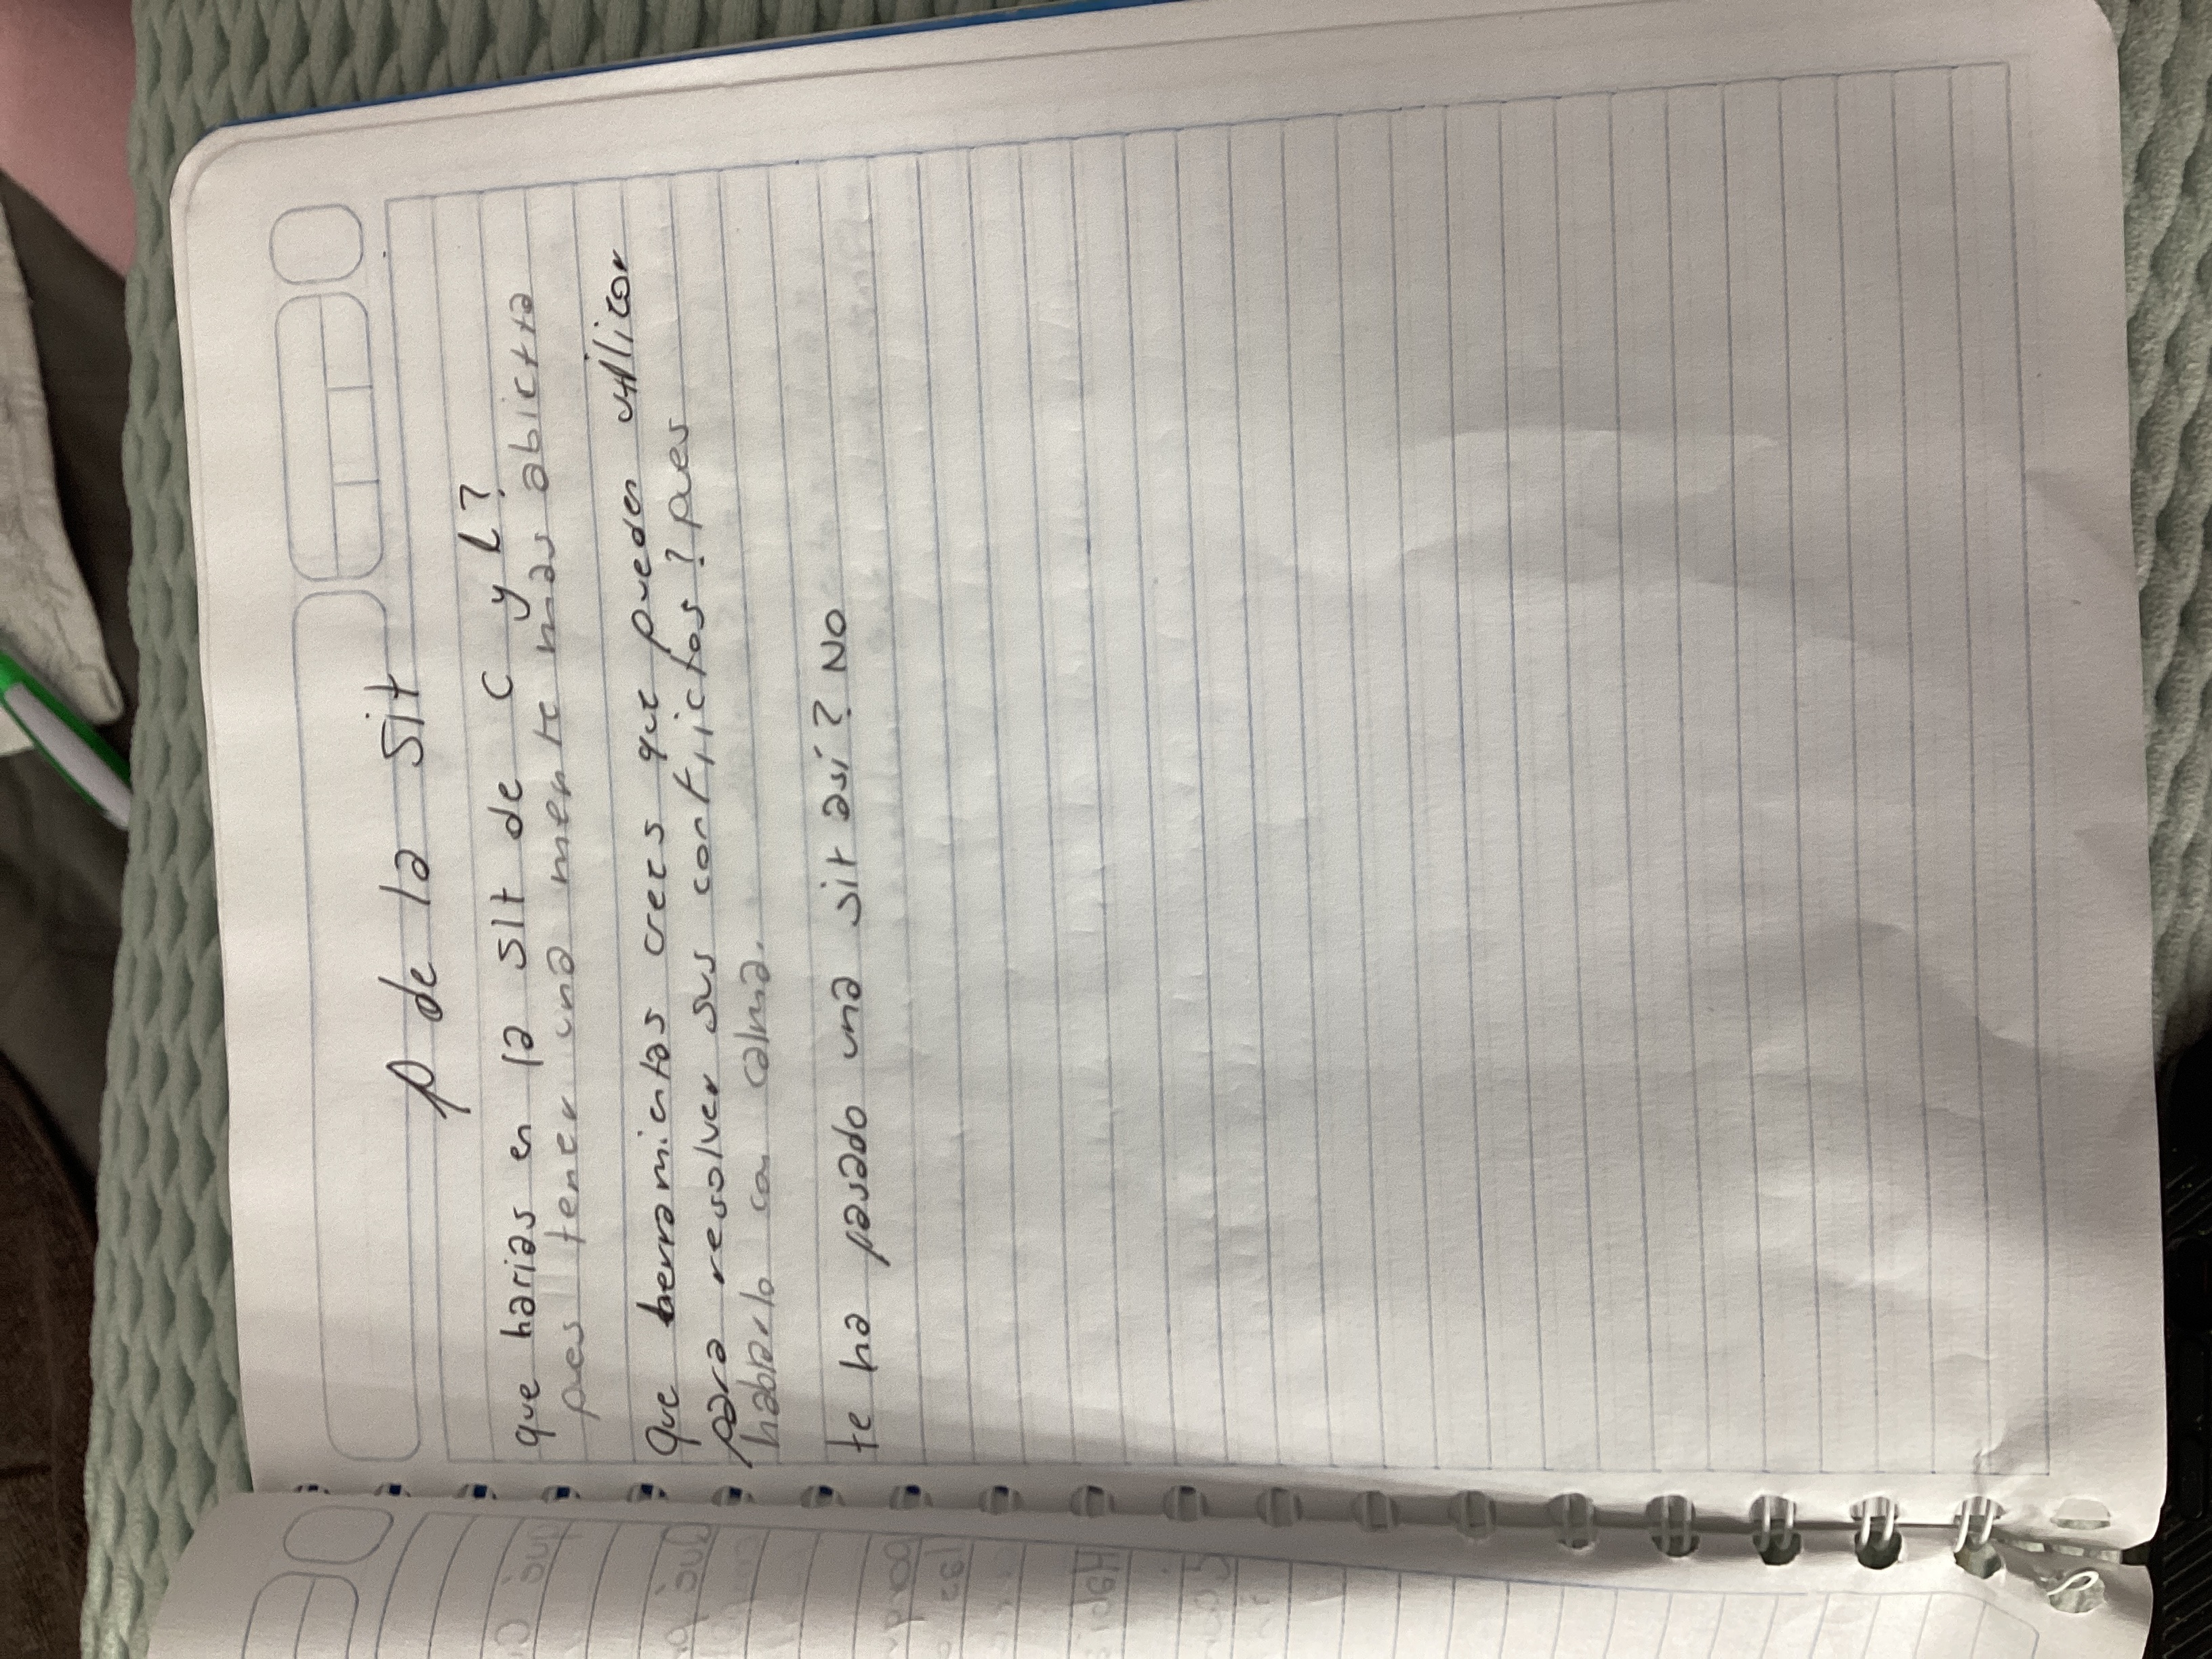 p de la sit
que harias en la sit de C y L?
pues tener una mente mas abierta
Que herramientas crees que pueden utilicar
para resolver sus conflictos? pues
hablarlo con calma.
te ha pasado una sit así? NO